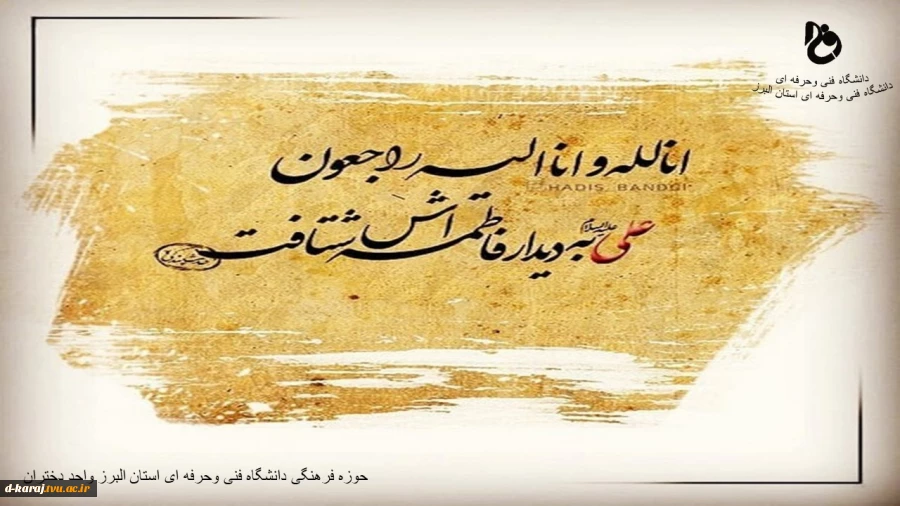 دانشگاه فنی وحرفه ای
دانشگاه فنی وحرفه ای استان البرز
انا لله و انا الیه راجعون
HADIS_BANDGI
علی علیه السلام به دیدار فاطمه اَش شتافت
حوزه فرهنگی دانشگاه فنی وحرفه ای استان البرز واحد دختران
d-karaj.tvu.ac.ir